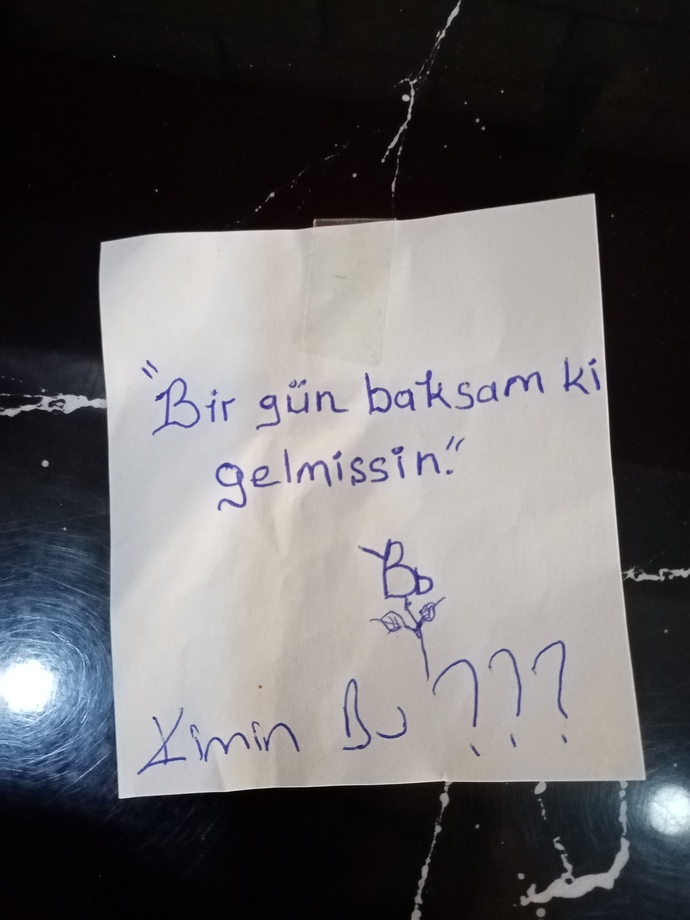 "Bir gün baksam ki
gelmissin."
Bb
Kimin Bu ???